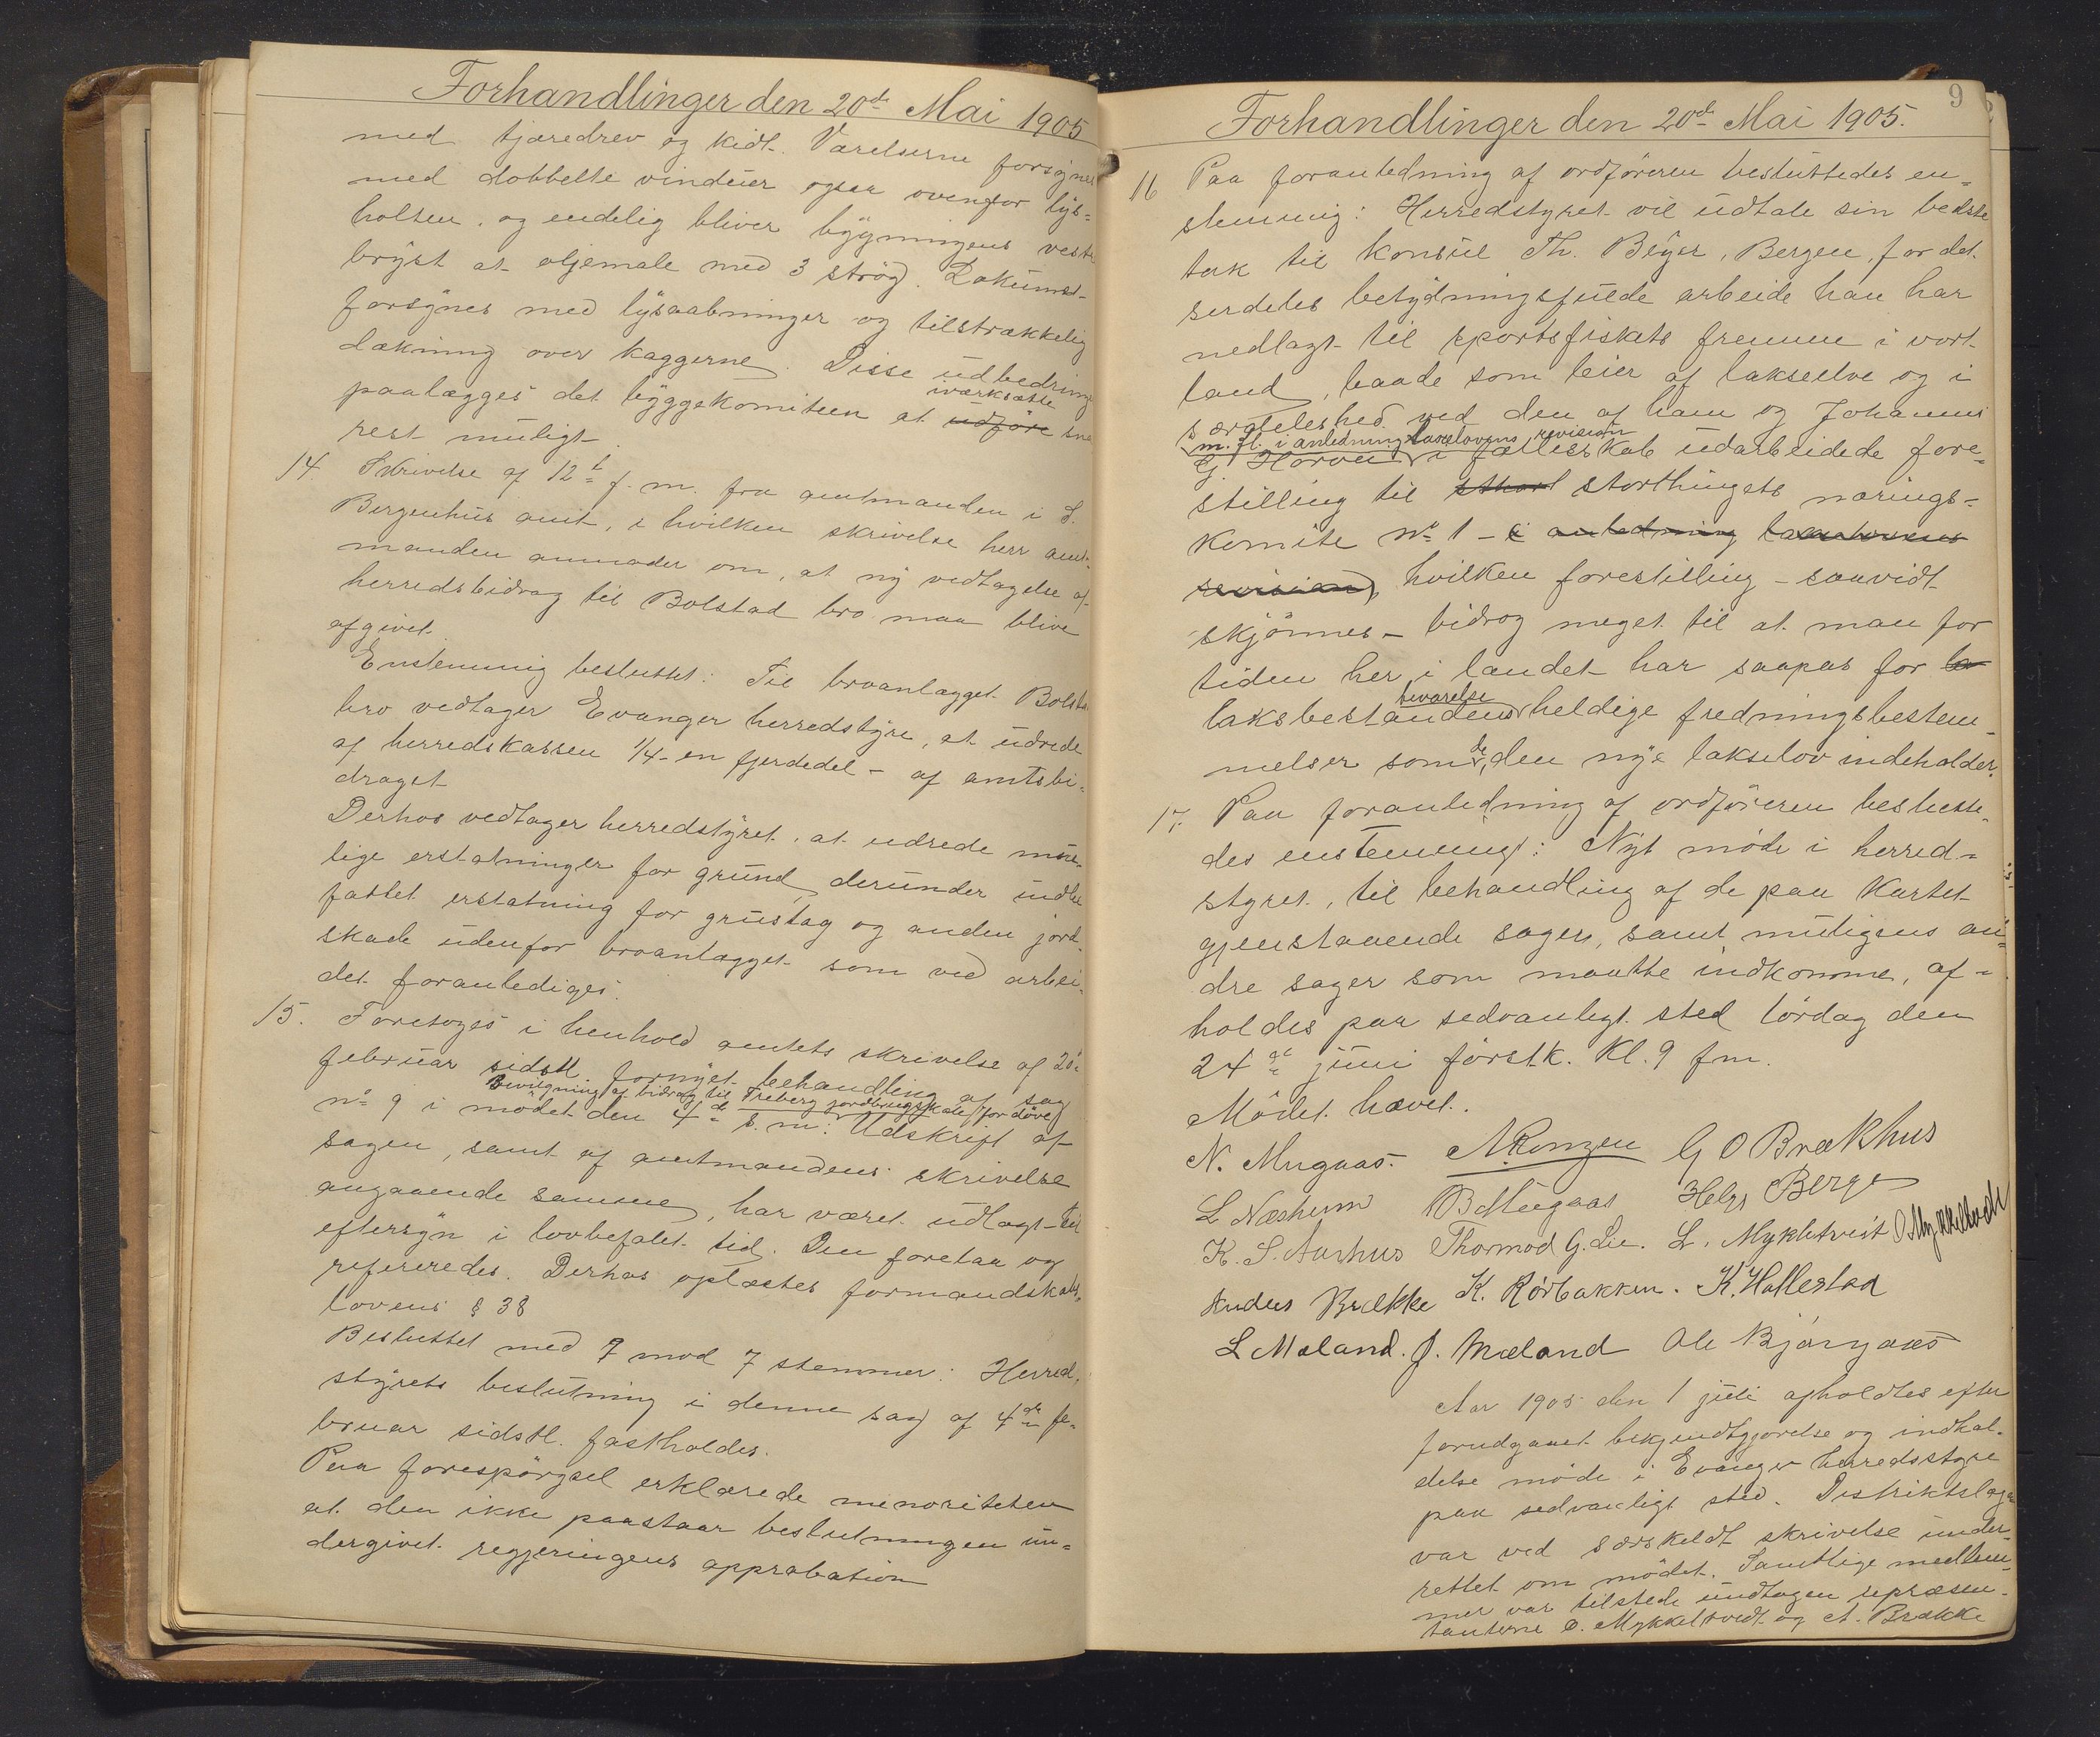 Forhandlinger den 20de Mai 1905
med tjæredrev og kidt. Værelserne forsynes
med dobbelte vinduer ogsaa ovenfor lys=
holten, og endelig bliver bygningens vestre
bryst at oljemale med 3 strøg. Lokumet
forsynes med lysaabninger og tilstrækkelig
dækning over kaggerne. Disse udbedringer
paalægges det byggekomiteen at udføre iværksætte sna
rest muligt.
14. Skrivelse af 12te f. m. fra amtmanden i S.
Bergenhus amt, i hvilken skrivelse herr amt-
manden anmoder om, at ny vedtagelse af
herredsbidrag til Bolstad bro maa blive
afgivet.
Enstemmig besluttet: Til broanlægget Bolstad
bro vedtager Evanger herredstyre, at udrede
af herredskassen 1/4 - en fjerdedel - af amtsbi-
draget
Derhos vedtager herredstyret, at udrede mue-
lige erstatninger for grund, derunder indbe
fattet erstatning for grustag og anden jord-
skade udenfor broanlægget som ved arbei-
det foranlediges.
15. Foretoges i henhold amtets skrivelse af 20de
februar sidstl. fornyet behandling af sag
no 9 i mødet den 4de s. m: Bevilgning af bidrag til Treberg jordbrugskole for døve) Udskrift af
sagen, samt af amtmandens skrivelse
angaaende samme, har været udlagt til
eftersyn i lovbefalet tid. Den foretaa og
refereredes. Derhos oplæstes formandskabs-
lovens § 38
Besluttet med 7 mod 7 stemmer: Herred-
styrets beslutning i denne sag af 4de fe-
bruar sidstl. fastholdes.
Paa forespørgsel erklærede minoriteten
at den ikke paastaar beslutningen un=
dergivet regjeringens approbation
9
Forhandlinger den 20de Mai 1905.
16 Paa foranledning af ordføreren besluttedes en=
stemmig: Herredstyret vil udtale sin bedste
tak til konsul Th. Beyer, Bergen, for det
serdeles betydningsfulde arbeide han har
nedlagt til sportsfiskets fremme i vort
land, baade som leier af lakseelve og i
særdeleshed ved den af ham og Johannes
G Horvei m. fl. i anledning lakselovens revision i fælleskab udarbeidede fore=
stilling til sthort storthingets nærings=
komite no 1 - i anledning laxelovens
revision, hvilken forestilling - saavidt
skjønnes - bidrog meget til at man for
tiden her i landet har saapas for la
laksbestandens bevarelse heldige fredningsbestem-
melser som de, den nye lakselov indeholder.
17. Paa foranledning af ordføreren beslutte-
des enstemmigt: Nyt møde i herred=
styret, til behandling af de paa kartet
gjenstaaende sager, samt muligens an=
dre sager som maatte indkomme, af=
holdes paa sedvanligt sted lørdag den
24de juni førstk. Kl. 9 fm.
Mødet hævet.
N. Mugaas. G O Brækhus
L Næsheim Helge Berge
K. S. Aarhus Thormod G. Lie. L. Mykletveit O Mykkeltvedt
Anders Brække K. Rørbakken. K. Hallestad
L Mæland. J. Mæland Ole Bjørgaas
Aar 1905 den 1 juli afholdtes efter
forudgaaet bekjendtgjørelse og indkal-
delse møde i Evanger herredsstyre
paa sedvanligt sted. Distriktslægen
var ved særskeldt skrivelse under-
rettet om mødet. Samtlige medlem-
mer var tilstede undtagen repræsen-
tanterne O. Mykkeltvedt og A. Brække